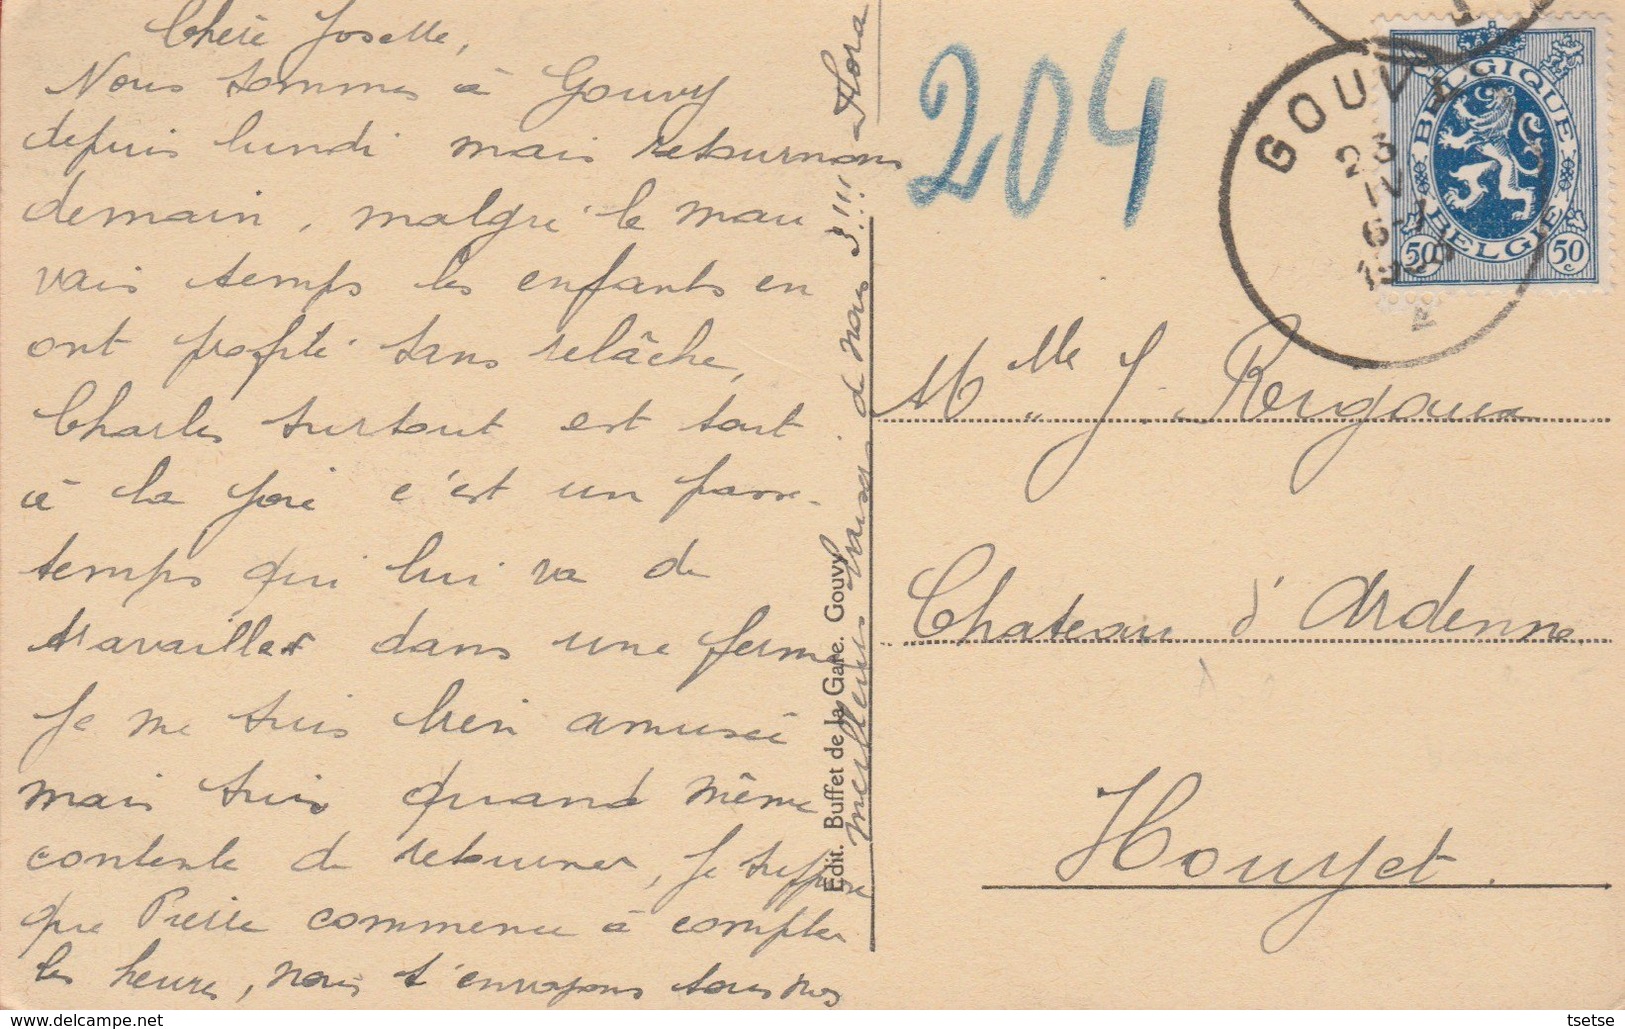 Chère Josette,
Nous sommes à Gouvy
depuis lundi mais retournons
demain, malgré le mau
vais temps les enfants en
ont profité sans relâche,
Charles surtout est tout
à la joie c'est un passe-
temps qui lui va de
travailler dans une ferme
Je me suis bien amusée
mais suis quand même
contente de retourner, je suppose
que Pierre commence à compter
les heures, nous t'envoyons tous nos
meilleurs baisers de nous 3!!! Flora
Edit. Buffet de la Gare. Gouvy
204
GOUVY
23
IV
6-7
BELGIQUE
BELGIE
50 50
c
Mlle J. Rergoux
Chateau d'Ardenne
Houyet.
tsetse